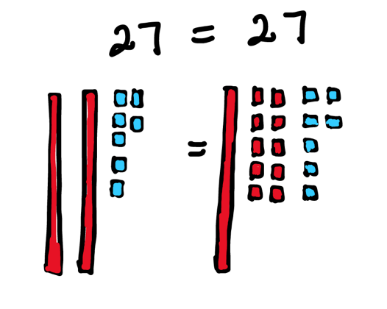 27 = 27
=